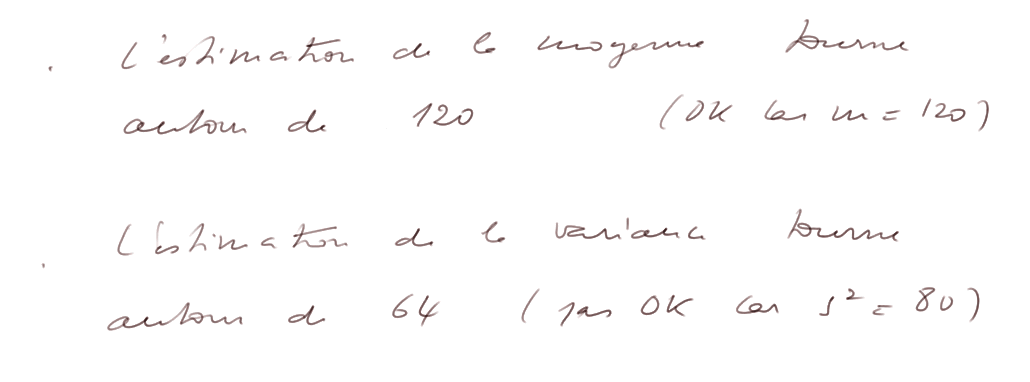 . L'estimation de la moyenne tourne
autour de 120 (OK car m = 120)
. L'estimation de la variance tourne
autour de 64 (pas OK car s² = 80)